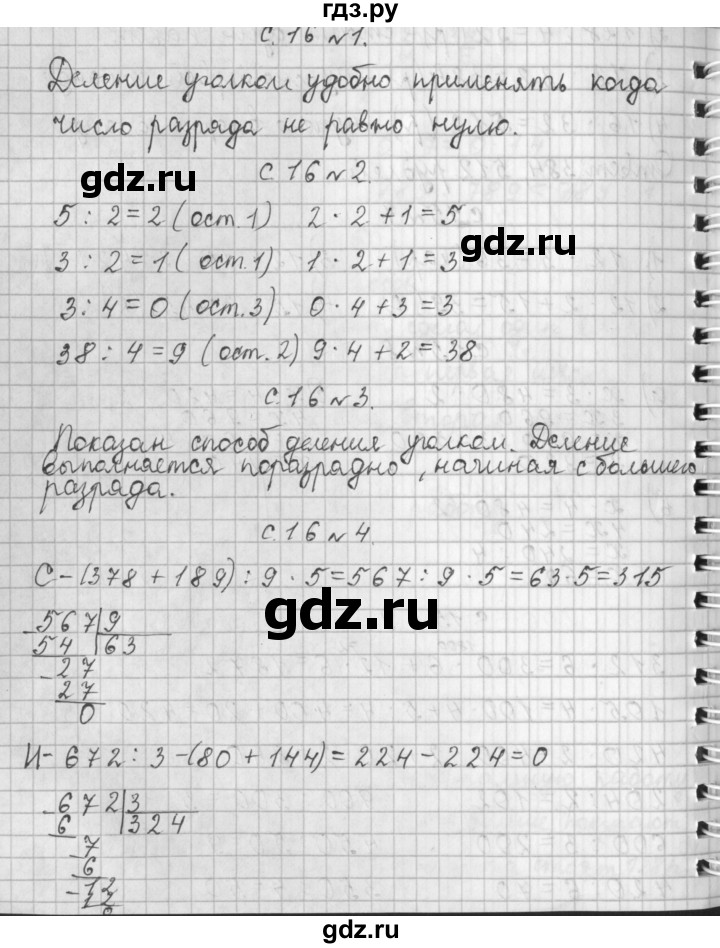 гдз.ру
с. 16 №1.
Деление уголком удобно применять когда
число разряда не равно нулю.
gdz.ru
с. 16 №2.
5 : 2 = 2 (ост. 1) 2 · 2 + 1 = 5
gdz.ru
3 : 2 = 1 (ост. 1) 1 · 2 + 1 = 3
3 : 4 = 0 (ост. 3) 0 · 4 + 3 = 3
38 : 4 = 9 (ост. 2) 9 · 4 + 2 = 38
с. 16 №3.
Показан способ деления уголком. Деление
выполняется поразрядно, начиная с большего
разряда.
с. 16 №4.
С - (378 + 189) : 9 · 5 = 567 : 9 · 5 = 63 · 5 = 315
gdz.ru
- 567 | 9
54 | 63
- 27
27
0
И - 672 : 3 - (80 + 144) = 224 - 224 = 0
- 672 | 3
6 | 324
- 7
6
- 12
12
0
gdz.ru
gdz.ru